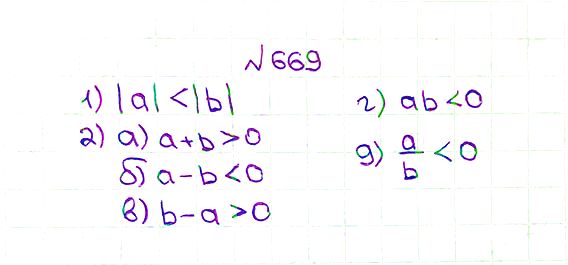 №669
1) |a| < |b|
2) а) a + b > 0
б) a - b < 0
в) b - a > 0
г) ab < 0
д) a/b < 0